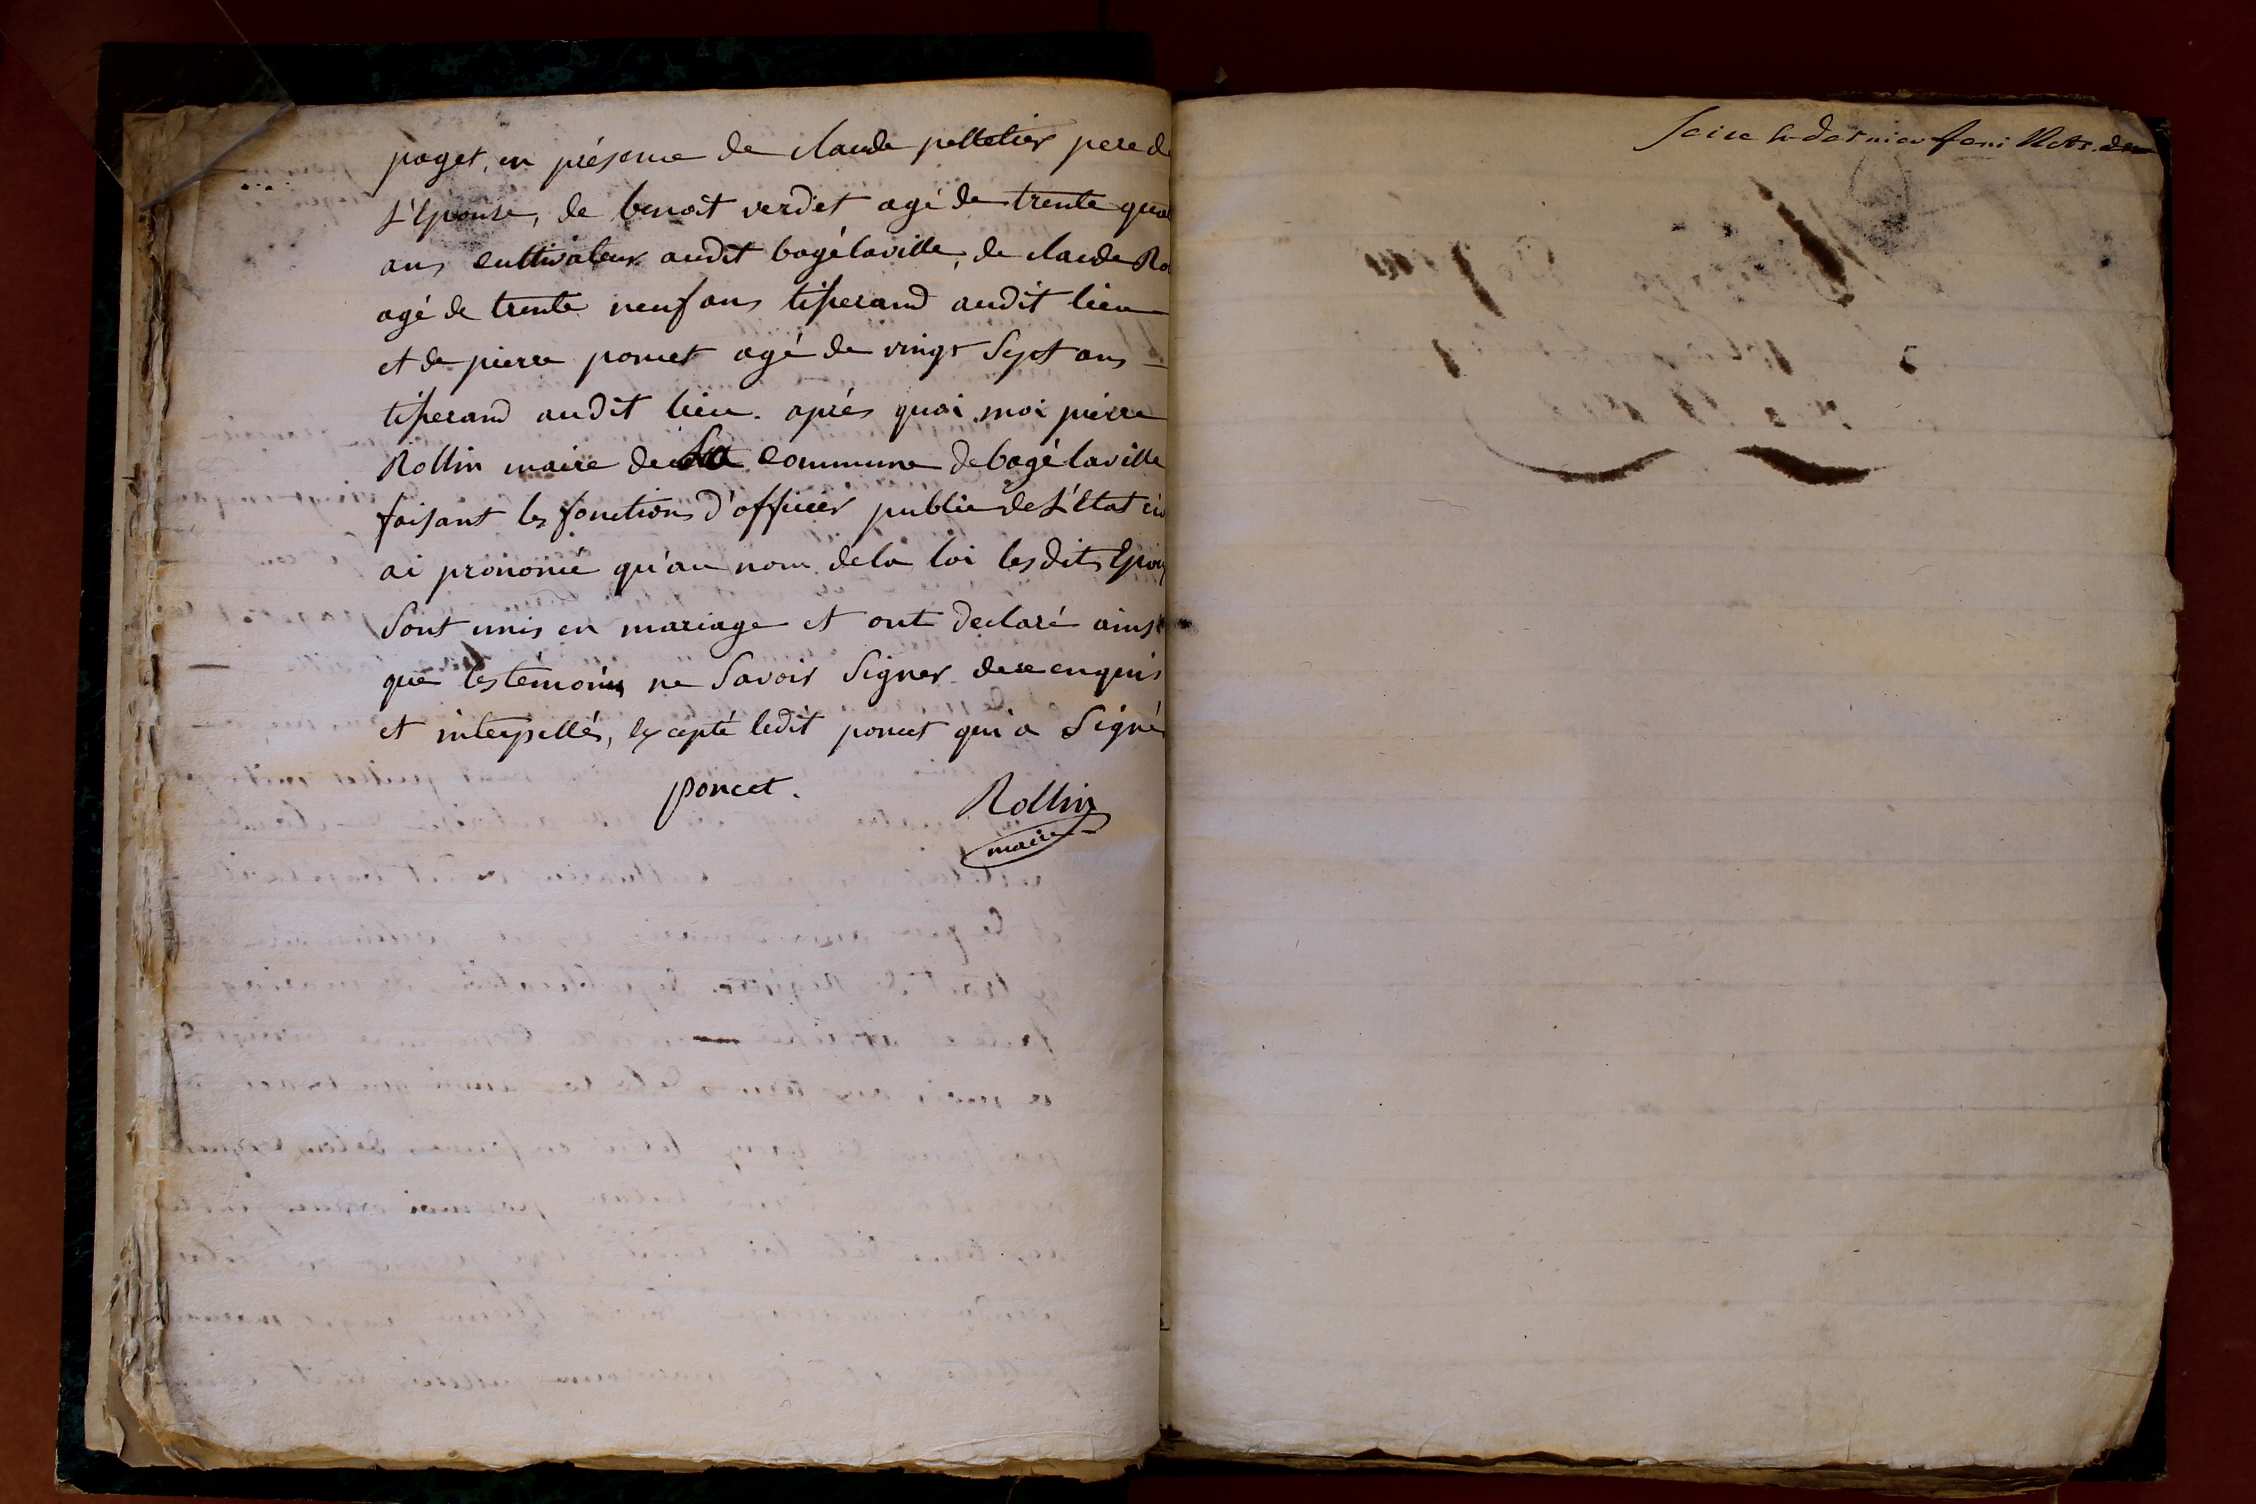 paget, en présence de claude pelletier pere de
L'Epouse, de benoit verdet agé de trente quat
ans cultivateur audit bagélaville, de claude Ro
agé de trente neuf ans tisserand audit lieu
et de pierre poncet agé de vingt Sept ans
tisserand audit lieu. après quoi moi pierre
Rollin maire de la commune de bagélaville
faisant les fonctions d'officier public de L'Etat civ
ai prononcé qu'au nom de la loi lesdits Epou
Sont unis en mariage et ont declaré ainsi
que les témoins ne Savoir Signer de ce enquis
et interpellés, excepté ledit poncet qui a Signé
poncet.
Rollin
maire
Seize & dernier feuillet